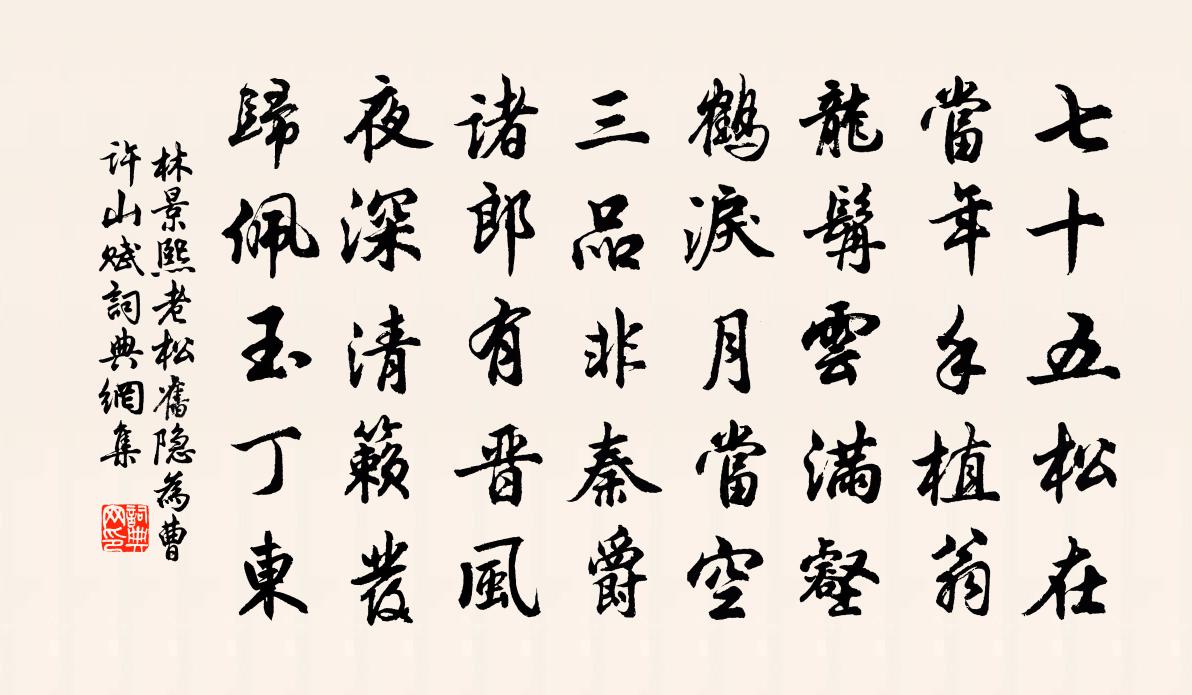 七十五松在
當年手植翁
龍髯雲滿壑
鶴淚月當空
三品非秦爵
諸郎有晋風
夜深清籟發
歸佩玉丁東
林景熙老松舊隐為曹
許山賦詞典網集
詞典網印